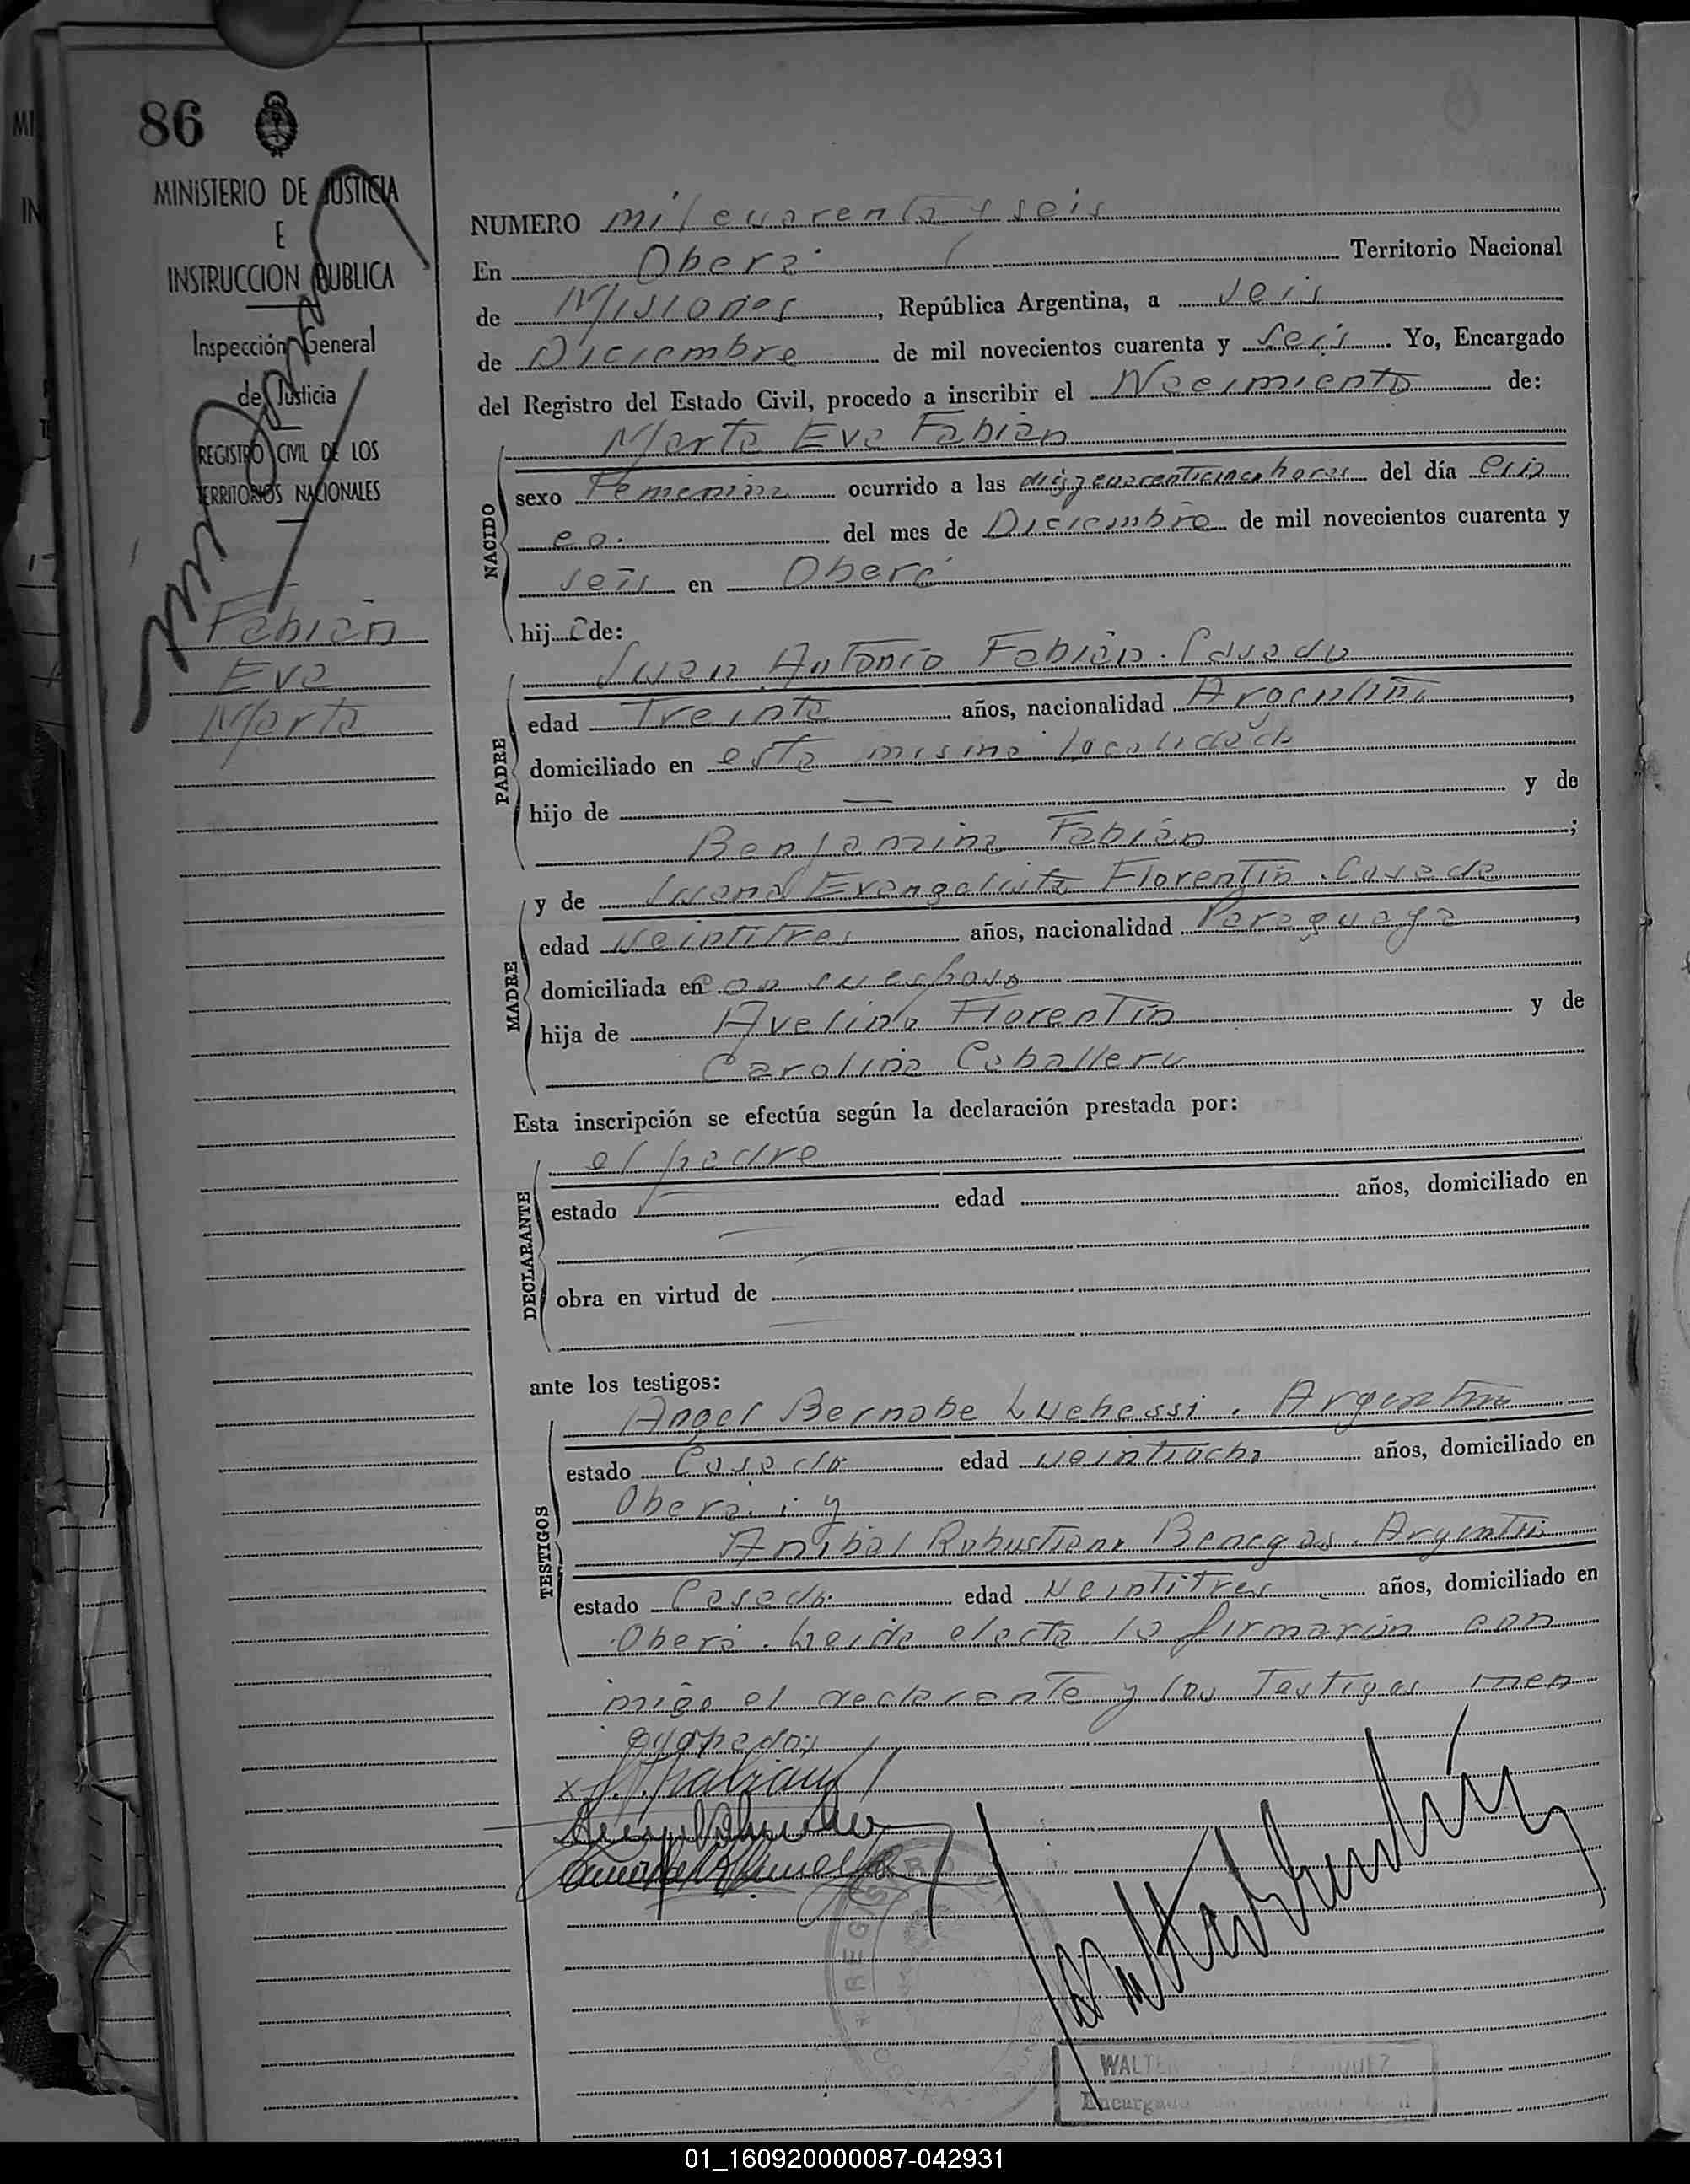 86
MINISTERIO DE JUSTICIA
E
INSTRUCCION PUBLICA
Inspección General
de Justicia
REGISTRO CIVIL DE LOS
TERRITORIOS NACIONALES
Fabián
Eva
Marta
NUMERO mil cuarenta y seis
En Oberá Territorio Nacional
de Misiones, República Argentina, a seis
de Diciembre de mil novecientos cuarenta y seis. Yo, Encargado
del Registro del Estado Civil, procedo a inscribir el Nacimiento de:
Marta Eva Fabián
NACIDO
sexo Femenino ocurrido a las horas del día cin
co. del mes de Diciembre de mil novecientos cuarenta y
seis en Oberá
hija de:
Juan Antonio Fabián. Casado
PADRE
edad Treinta años, nacionalidad Argentina,
domiciliado en esta misma localidad
hijo de — y de
Benjamina Fabián;
y de Juana Evangelista Florentín. Casada
MADRE
edad veintitres años, nacionalidad Paraguaya,
domiciliada en con su esposo
hija de Avelino Florentín y de
Carolina Caballero
Esta inscripción se efectúa según la declaración prestada por:
el padre
DECLARANTE
estado edad años, domiciliado en
obra en virtud de
ante los testigos:
Angel Bernabe Luchessi. Argentino
TESTIGOS
estado Casado edad veintiocho años, domiciliado en
Oberá. y
Anibal Robustiano Benegas. Argentino
estado Casado. edad veintitres años, domiciliado en
Oberá. Leida el acta la firmarón con
migo el declarante y los testigos men
cionados
REGISTRO
WALTER
Encargado
01_160920000087-042931